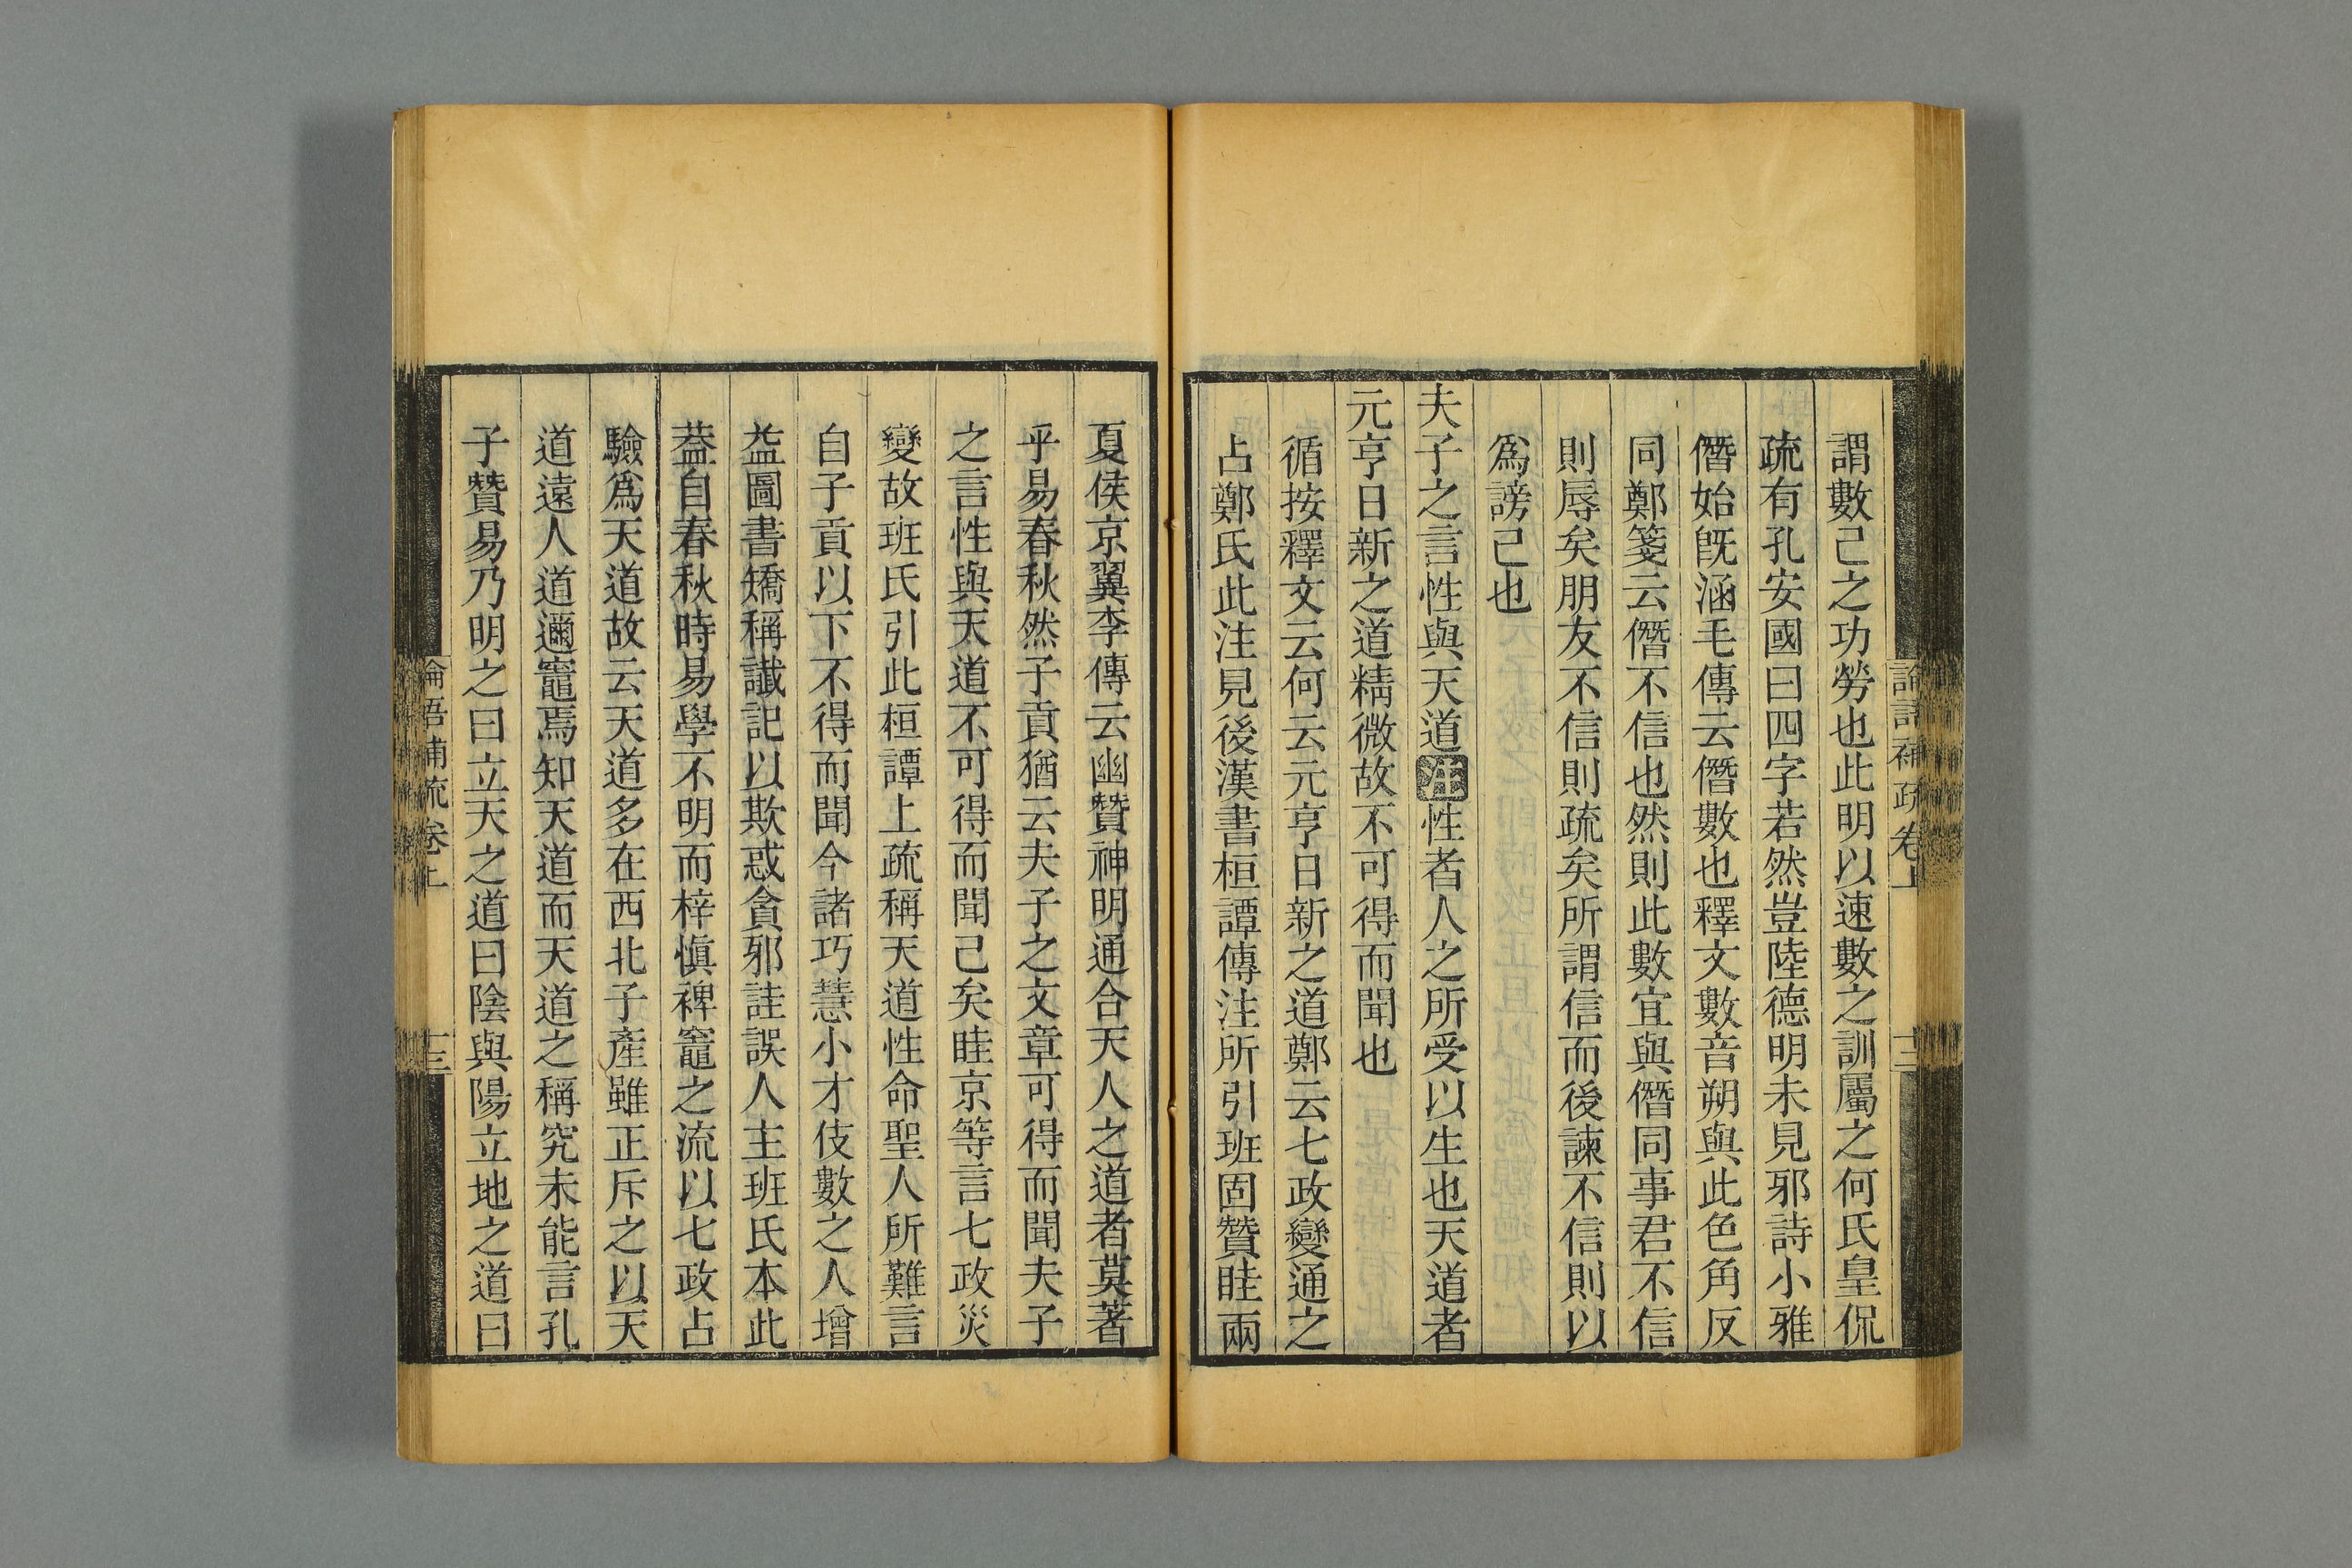 論語補疏卷上
十二
謂數己之功勞也此明以速數之訓屬之何氏皇侃
疏有孔安國曰四字若然豈陸德明未見邪詩小雅
僭始旣涵毛傳云僭數也釋文數音朔與此色角反
同鄭箋云僭不信也然則此數宜與僭同事君不信
則辱矣朋友不信則疏矣所謂信而後諫不信則以
爲謗己也
夫子之言性與天道注性者人之所受以生也天道者
元亨日新之道精微故不可得而聞也
循按釋文云何云元亨日新之道鄭云七政變通之
占鄭氏此注見後漢書桓譚傳注所引班固贊眭兩
夏侯京翼李傳云幽贊神明通合天人之道者莫著
乎易春秋然子貢猶云夫子之文章可得而聞夫子
之言性與天道不可得而聞已矣眭京等言七政災
變故班氏引此桓譚上疏稱天道性命聖人所難言
自子貢以下不得而聞今諸巧慧小才伎數之人增
益圖書矯稱讖記以欺惑貪邪詿誤人主班氏本此
葢自春秋時易學不明而梓愼裨竈之流以七政占
驗爲天道故云天道多在西北子產雖正斥之以天
道遠人道邇竈焉知天道而天道之稱究未能言孔
子贊易乃明之曰立天之道曰陰與陽立地之道曰
論語補疏卷上
十三